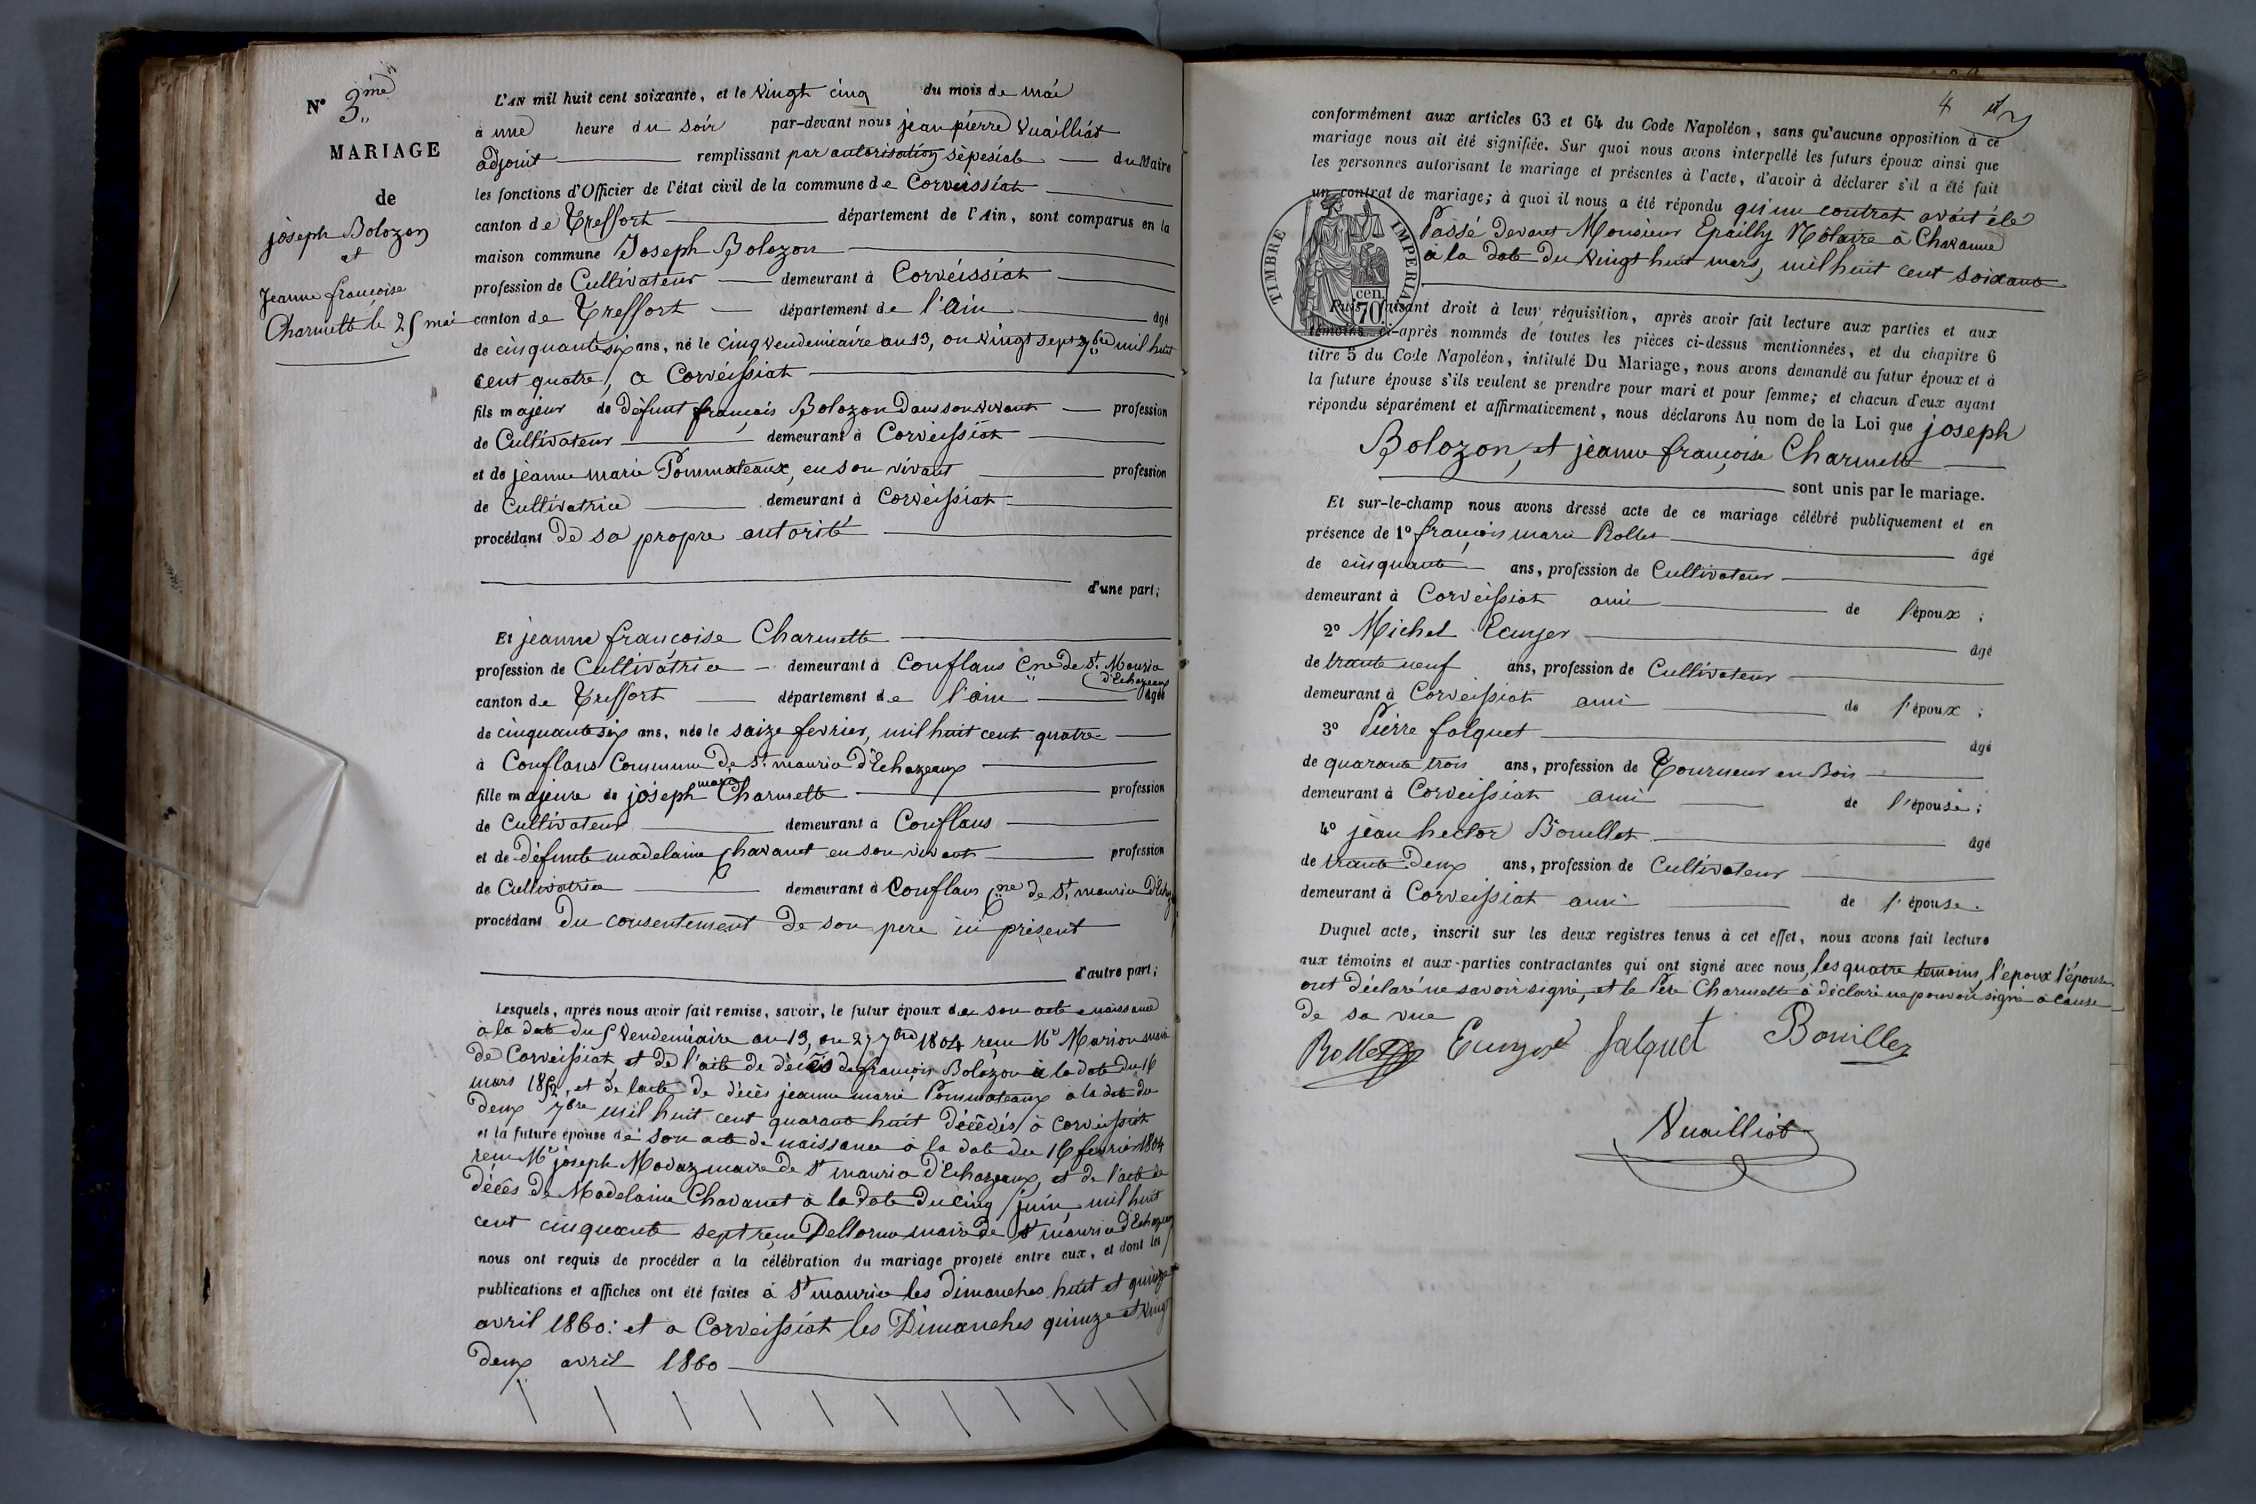 N° 3.ème
MARIAGE
de
joseph Bolozon
et
Jeanne françoise
Charmette le 25 mai
L'AN mil huit cent soixante, et le vingt cinq du mois de mai
à une heure du soir par-devant nous jean pierre Vuailliat
adjoint remplissant par autorisation sèpesiale du Maire
les fonctions d'Officier de l'état civil de la commune de Corveissiat
canton de Treffort département de l'Ain, sont comparus en la
maison commune Joseph Bolozon
profession de Cultivateur demeurant à Corvéissiat
canton de Treffort département de l'Ain âgé
de cinquante six ans, né le cinq vendemiaire an 13, ou vingt sept 7bre mil huit
cent quatre, a Corveissiat
fils majeur de défunt françois Bolozon dans son vivant profession
de Cultivateur demeurant à Corveissiat
et de jeanne marie Pommateaux, en son vivant profession
de Cultivatrice demeurant à Corveissiat
procédant De sa propre autorité
d'une part;
Et jeanne françoise Charmette
profession de Cultivatrice demeurant à Conflans Cne de St. Mauria
d'Echazeaux
canton de Treffort département de l'ain âgée
de cinquante six ans, née le saize fevrier, mil huit cent quatre
à Conflans Commune De St. mauria d'Echazeaux
fille majeure de joseph marie Charmette profession
de Cultivateur demeurant à Conflans
et de défunte madelaine Chavanet en son vivant profession
de Cultivatrice demeurant à Conflans Cne de St. mauria D'Echaz
procédant Du consentement De son pere ici présent
d'autre part;
Lesquels, après nous avoir fait remise, savoir, le futur époux de son acte naissance
à la date du 5 Vendemiaire an 13, ou 27 7bre 1804 reçu Mr Marion maire
de Corveissiat, et de l'acte de décès de françois Bolozon à la date du 16
mars 1852, et de l'acte de décès jeanne marie Pommateaux a la date du
Deux 7bre mil huit cent quarante huit décédés à Corveissiat
et la future épouse de son acte de naissance à la date du 16 fevrier 1804
reçu Mr joseph Mavaz maire de St mauria d'Echazeaux, et de l'acte de
décès de Madelaine Chavanet à la date du cinq juin, mil huit
cent cinquante sept reçu Dellorme maire de St mauria d'Echazeaux
nous ont requis de procéder à la célébration du mariage projeté entre eux, et dont les
publications et affiches ont été faites à St mauria les dimanches huit et quinze
avril 1860: et a Corveissiat les Dimanches quinze et vingt
Deux avril 1860
4
conformément aux articles 63 et 64 du Code Napoléon, sans qu'aucune opposition à ce
mariage nous ait été signifiée. Sur quoi nous avons interpellé les futurs époux ainsi que
les personnes autorisant le mariage et présentes à l'acte, d'avoir à déclarer s'il a été fait
un contrat de mariage; à quoi il nous a été répondu qu'un contrat avait été
Passé devant Monsieur Epailly Nôtaire à Chavanne
à la date Du vingt huit mars, mil huit cent soixante
TIMBRE IMPERIAL
70 cen.
Puis faisant droit à leur réquisition, après avoir fait lecture aux parties et aux
témoins ci-après nommés de toutes les pièces ci-dessus mentionnées, et du chapitre 6
titre 5 du Code Napoléon, intitulé Du Mariage, nous avons demandé au futur époux et à
la future épouse s'ils veulent se prendre pour mari et pour femme; et chacun d'eux ayant
répondu séparément et affirmativement, nous déclarons Au nom de la Loi que joseph
Bolozon, et jeanne françoise Charmette
sont unis par le mariage.
Et sur-le-champ nous avons dressé acte de ce mariage célébré publiquement et en
présence de 1° françois marie Rollet âgé
de cinquante ans, profession de Cultivateur
demeurant à Corveissiat ami de l'époux;
2° Michel Ecuyer âgé
de trante neuf ans, profession de Cultivateur
demeurant à Corveissiat ami de l'époux;
3° Pierre falquet âgé
de quarante trois ans, profession de Tourneur en Bois
demeurant à Corveissiat ami de l'épouse;
4° jean hector Bouillet âgé
de trante Deux ans, profession de Cultivateur
demeurant à Corveissiat ami de l'épouse.
Duquel acte, inscrit sur les deux registres tenus à cet effet, nous avons fait lecture
aux témoins et aux parties contractantes qui ont signé avec nous, les quatre temoins, l'epoux l'épouse
ont déclaré ne savoir signé, et le Père Charmette à déclaré ne pouvoir signé a cause
De sa vue
Rollet Ecuyer falquet Bouillez
Vuailliat